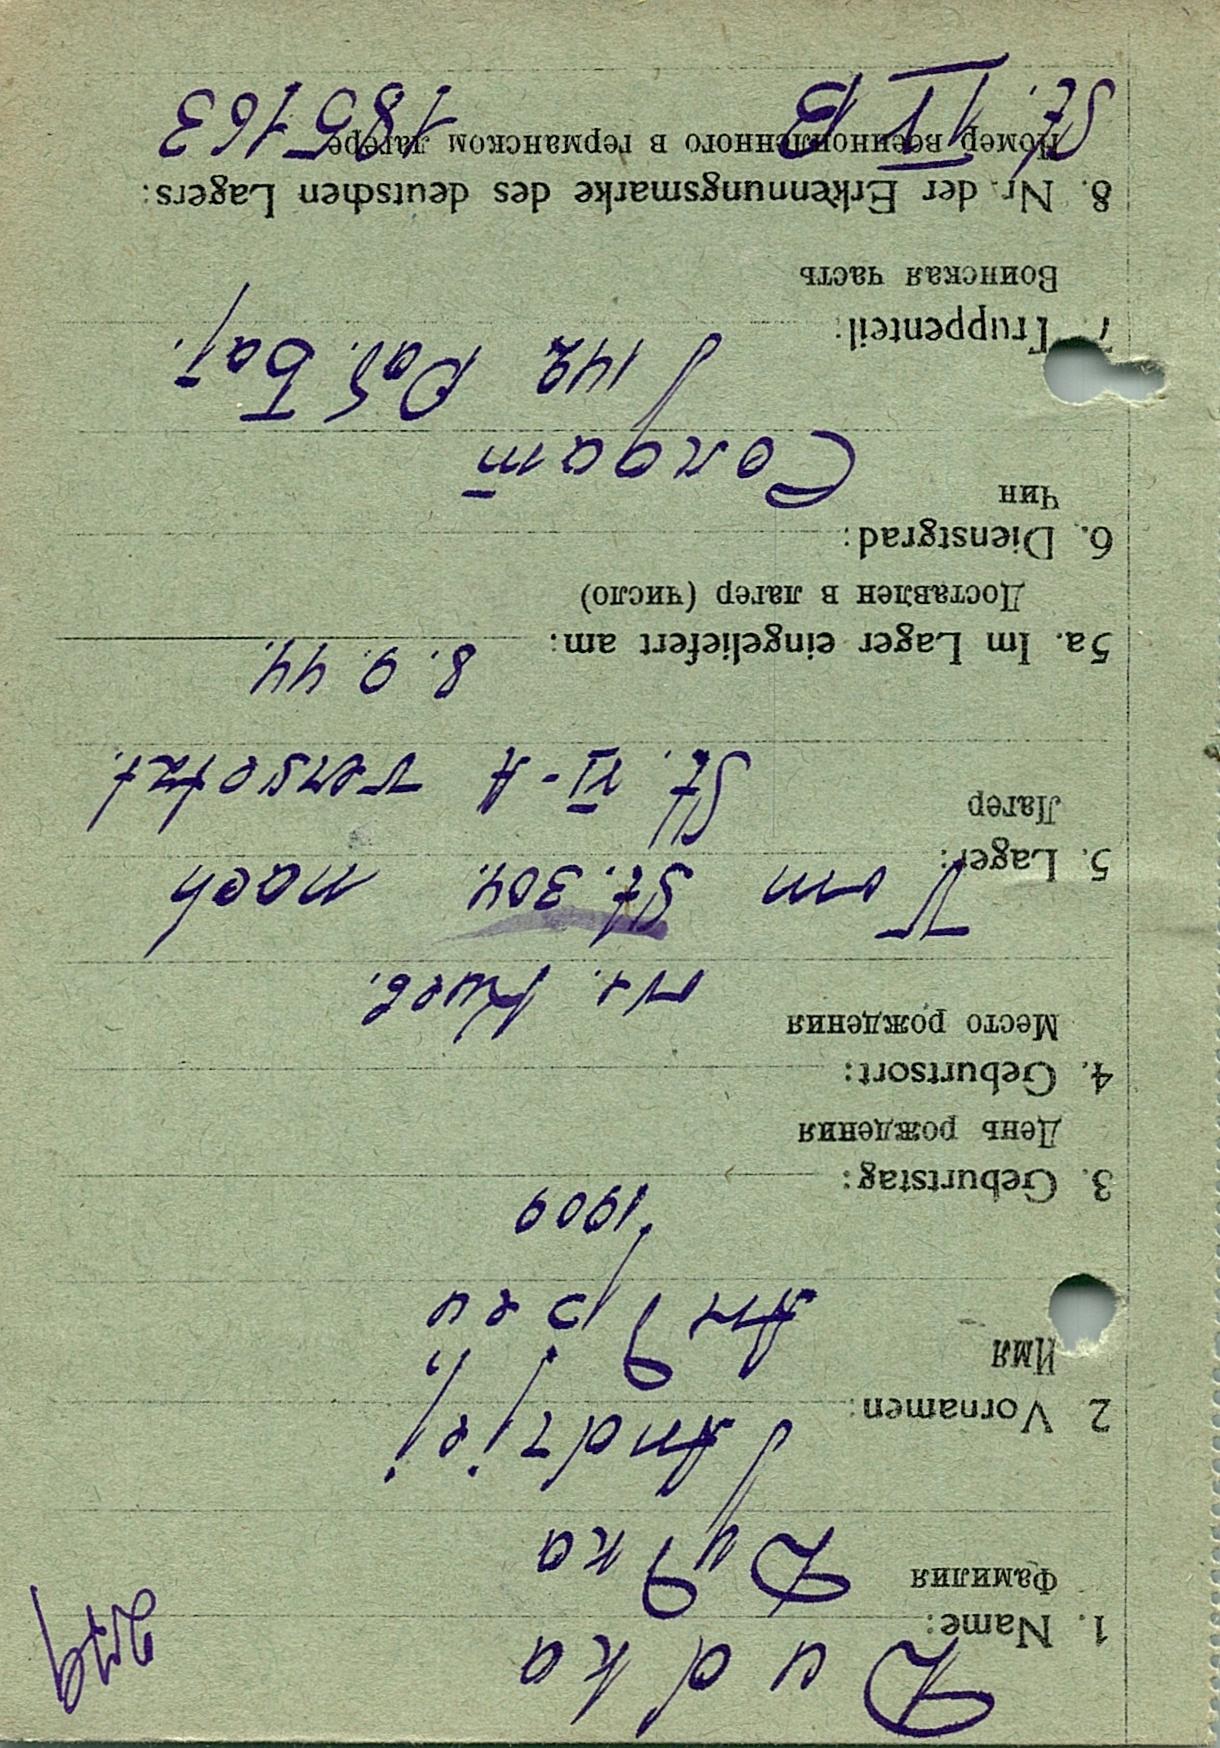 Dudka
1. Name:
Фамилия
Дудка
2 Vornamen:
Andriei
Имя
Андреи
1909
3. Geburtstag:
День рождения
4. Geburtsort:
Место рождения
Киев.
Vom St. 304. nach
5. Lager:
Лагер
St. VI-A versetzt.
8. 9. 44.
5a. Im Lager eingeliefert am:
Доставлен в лагер (число)
6. Dienstgrad:
Чин
Солдат
142 Раб. Бат.
7. Truppenteil:
Воинская часть
8. Nr. der Erkennungsmarke des deutschen Lagers:
Номер военнопленного в германском лагере
St. IV B 185163